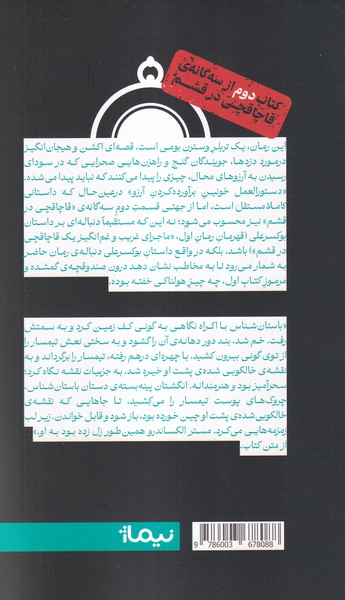 کتاب دوم از سه‌گانه‌ی
قاچاقچی در قشم
این رمان، یک تریلر وسترن بومی است. قصه‌ای اکشن و هیجان‌انگیز
درمورد دزدها، جویندگان گنج و راهزن‌هایی صحرایی که در سودای
رسیدن به آرزوهای محال، چیزی را پیدا می‌کنند که نباید پیدا می‌شده.
«دستورالعمل خونین برآورده‌کردن آرزو» درعین‌حال که داستانی
کاملا مستقل است، اما از جهتی قسمت دوم سه‌گانه‌ی «قاچاقچی در
قشم» نیز محسوب می‌شود؛ نه این که مستقیماً دنباله‌ای بر داستان
بوکسرعلی (قهرمان رمان اول، «ماجرای غریب و غم‌انگیز یک قاچاقچی
در قشم») باشد، بلکه در واقع داستان بوکسرعلی دنباله‌ی رمان حاضر
به شمار می‌رود تا به مخاطب نشان دهد درون صندوقچه‌ی گمشده و
مرموز کتاب اول، چه چیز هولناکی خفته بوده.
«باستان‌شناس با اکراه نگاهی به گونی کف زمین کرد و به سمتش
رفت. خم شد، بند دور دهانه‌ی آن را گشود و به سختی نعش تیمسار را
از توی گونی بیرون کشید. با چهره‌ای درهم رفته، تیمسار را برگرداند و به
نقشه‌ی خالکوبی‌شده‌ی پشت او خیره شد. به جزییات نقشه نگاه کرد؛
سحرآمیز بود و هنرمندانه. انگشتان پینه‌بسته‌ی دستان باستان‌شناس،
چروک‌های پوست تیمسار را می‌کشید، تا جاهایی که نقشه‌ی
خالکوبی‌شده‌ی پشت او چین خورده بود، باز شود و قابل خواندن. زیر لب
زمزمه‌هایی می‌کرد. مستر الکساندرو همین‌طور زل زده بود به او.»
از متن کتاب.
نیماژ
9 786003 678088